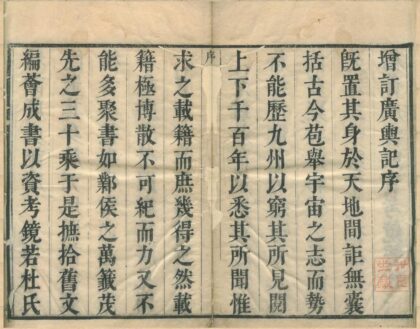 增訂廣輿記序
旣置其身於天地間詎無囊
括古今苞舉宇宙之志而勢
不能歷九州以窮其所見閱
上下千百年以悉其所聞惟
序
求之載籍而庶幾得之然載
籍極博散不可紀而力又不
能多聚書如鄴侯之萬籖茂
先之三十乘于是摭拾舊文
編薈成書以資考鏡若杜氏